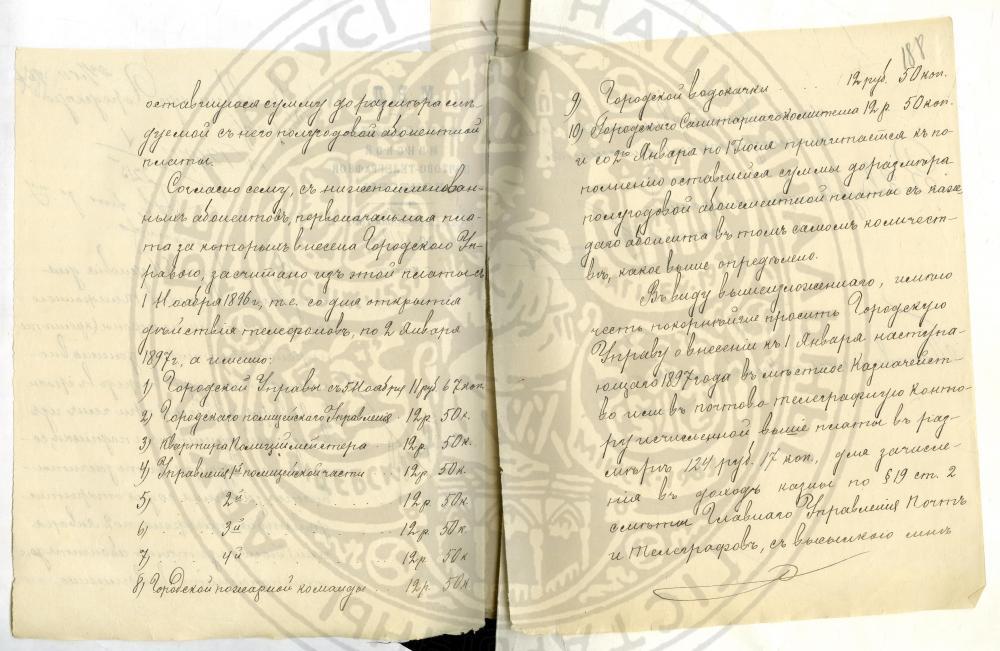 оставшуюся сумму до размѣра слѣ-
дуемой съ него полугодовой абонентной
платы.
Согласно сему, съ нижепоименован-
ныхъ абонентовъ, первоначальная пла-
та за которыхъ внесена Городскою Уп-
равою, засчитано изъ этой платы съ
1 Ноября 1896 г., т.е. со дня открытія
дѣйствія телефоновъ, по 2 Января
1897 г., а именно:
1) Городской Управы съ 5 Ноября 11 руб. 67 коп.
2) Городскаго полицейскаго Управленія . 12 р. 50 к.
3) Квартира Полиціймейстера .... 12 р. 50 к.
4) Управленія 1й полицейской части ... 12 р. 50 к.
5) . . . . . 2й . . . . . . 12 р. 50 к.
6) . . . . . 3й . . . . . . 12 р. 50 к.
7) . . . . . 4й . . . . . . 12 р. 50 к.
8) Городской пожарной команды ... 12 р. 50 к.
181
9) Городской водокачки ..... 12 руб. 50 коп.
10) Городскаго Санитарнаго комитета 12 р. 50 коп.
и со 2го Января по 1 Іюля причитается къ по-
полненію оставшейся суммы до размѣра
полугодовой абонементной платы съ каж-
даго абонента въ томъ самомъ количест-
вѣ, какое выше опредѣлено.
Въ виду вышеизложеннаго, имѣю
честь покорнѣйше просить Городскую
Управу о внесеніи къ 1 Января наступа-
ющаго 1897 года въ мѣстное Казначейст-
во или въ почтово-телеграфную конто-
ру исчисленной выше платы въ раз-
мѣрѣ 124 руб. 17 коп., для зачисле-
нія въ доходъ казны по § 19 ст. 2
смѣты Главнаго Управленія Почтъ
и Телеграфовъ, съ высылкою мнѣ